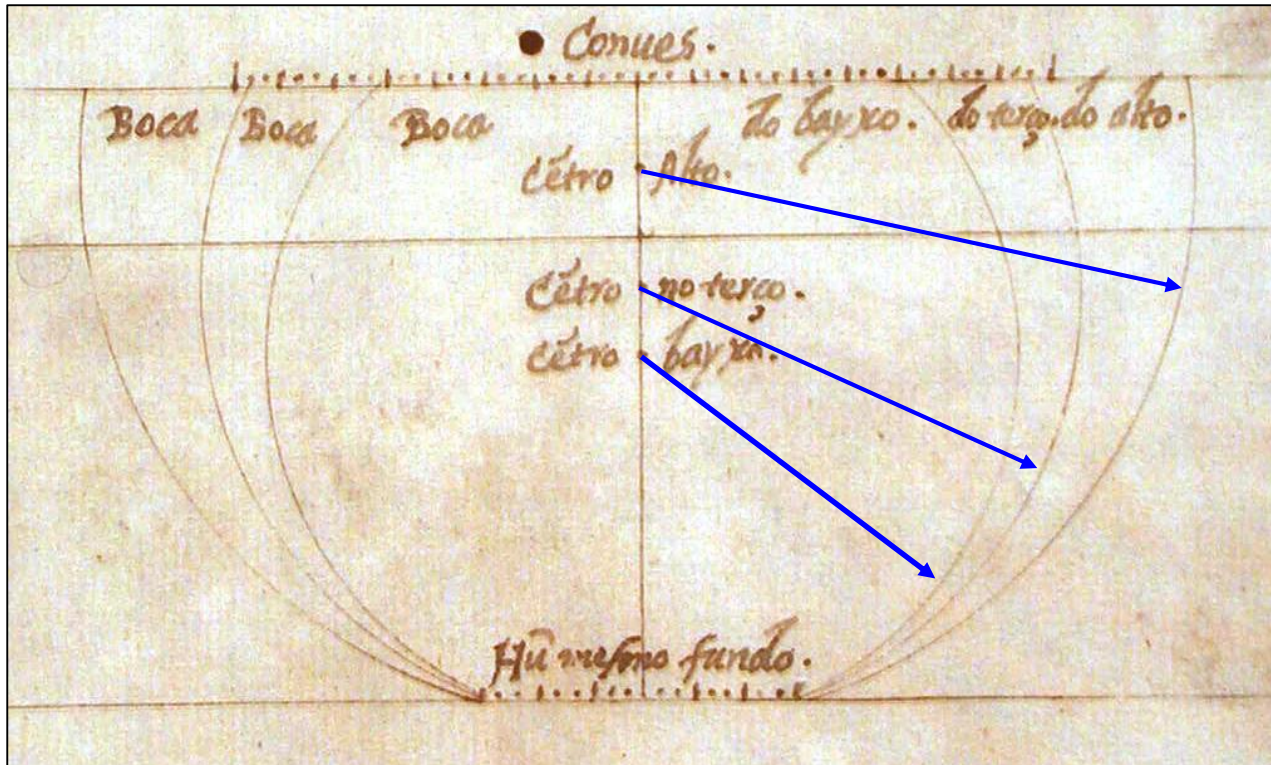 Conues.
Boca Boca Boca do bayxo. do terço. do alto.
Cẽtro Alto.
Cẽtro no terço.
Cẽtro bayxo.
Hũ mesmo fundo.